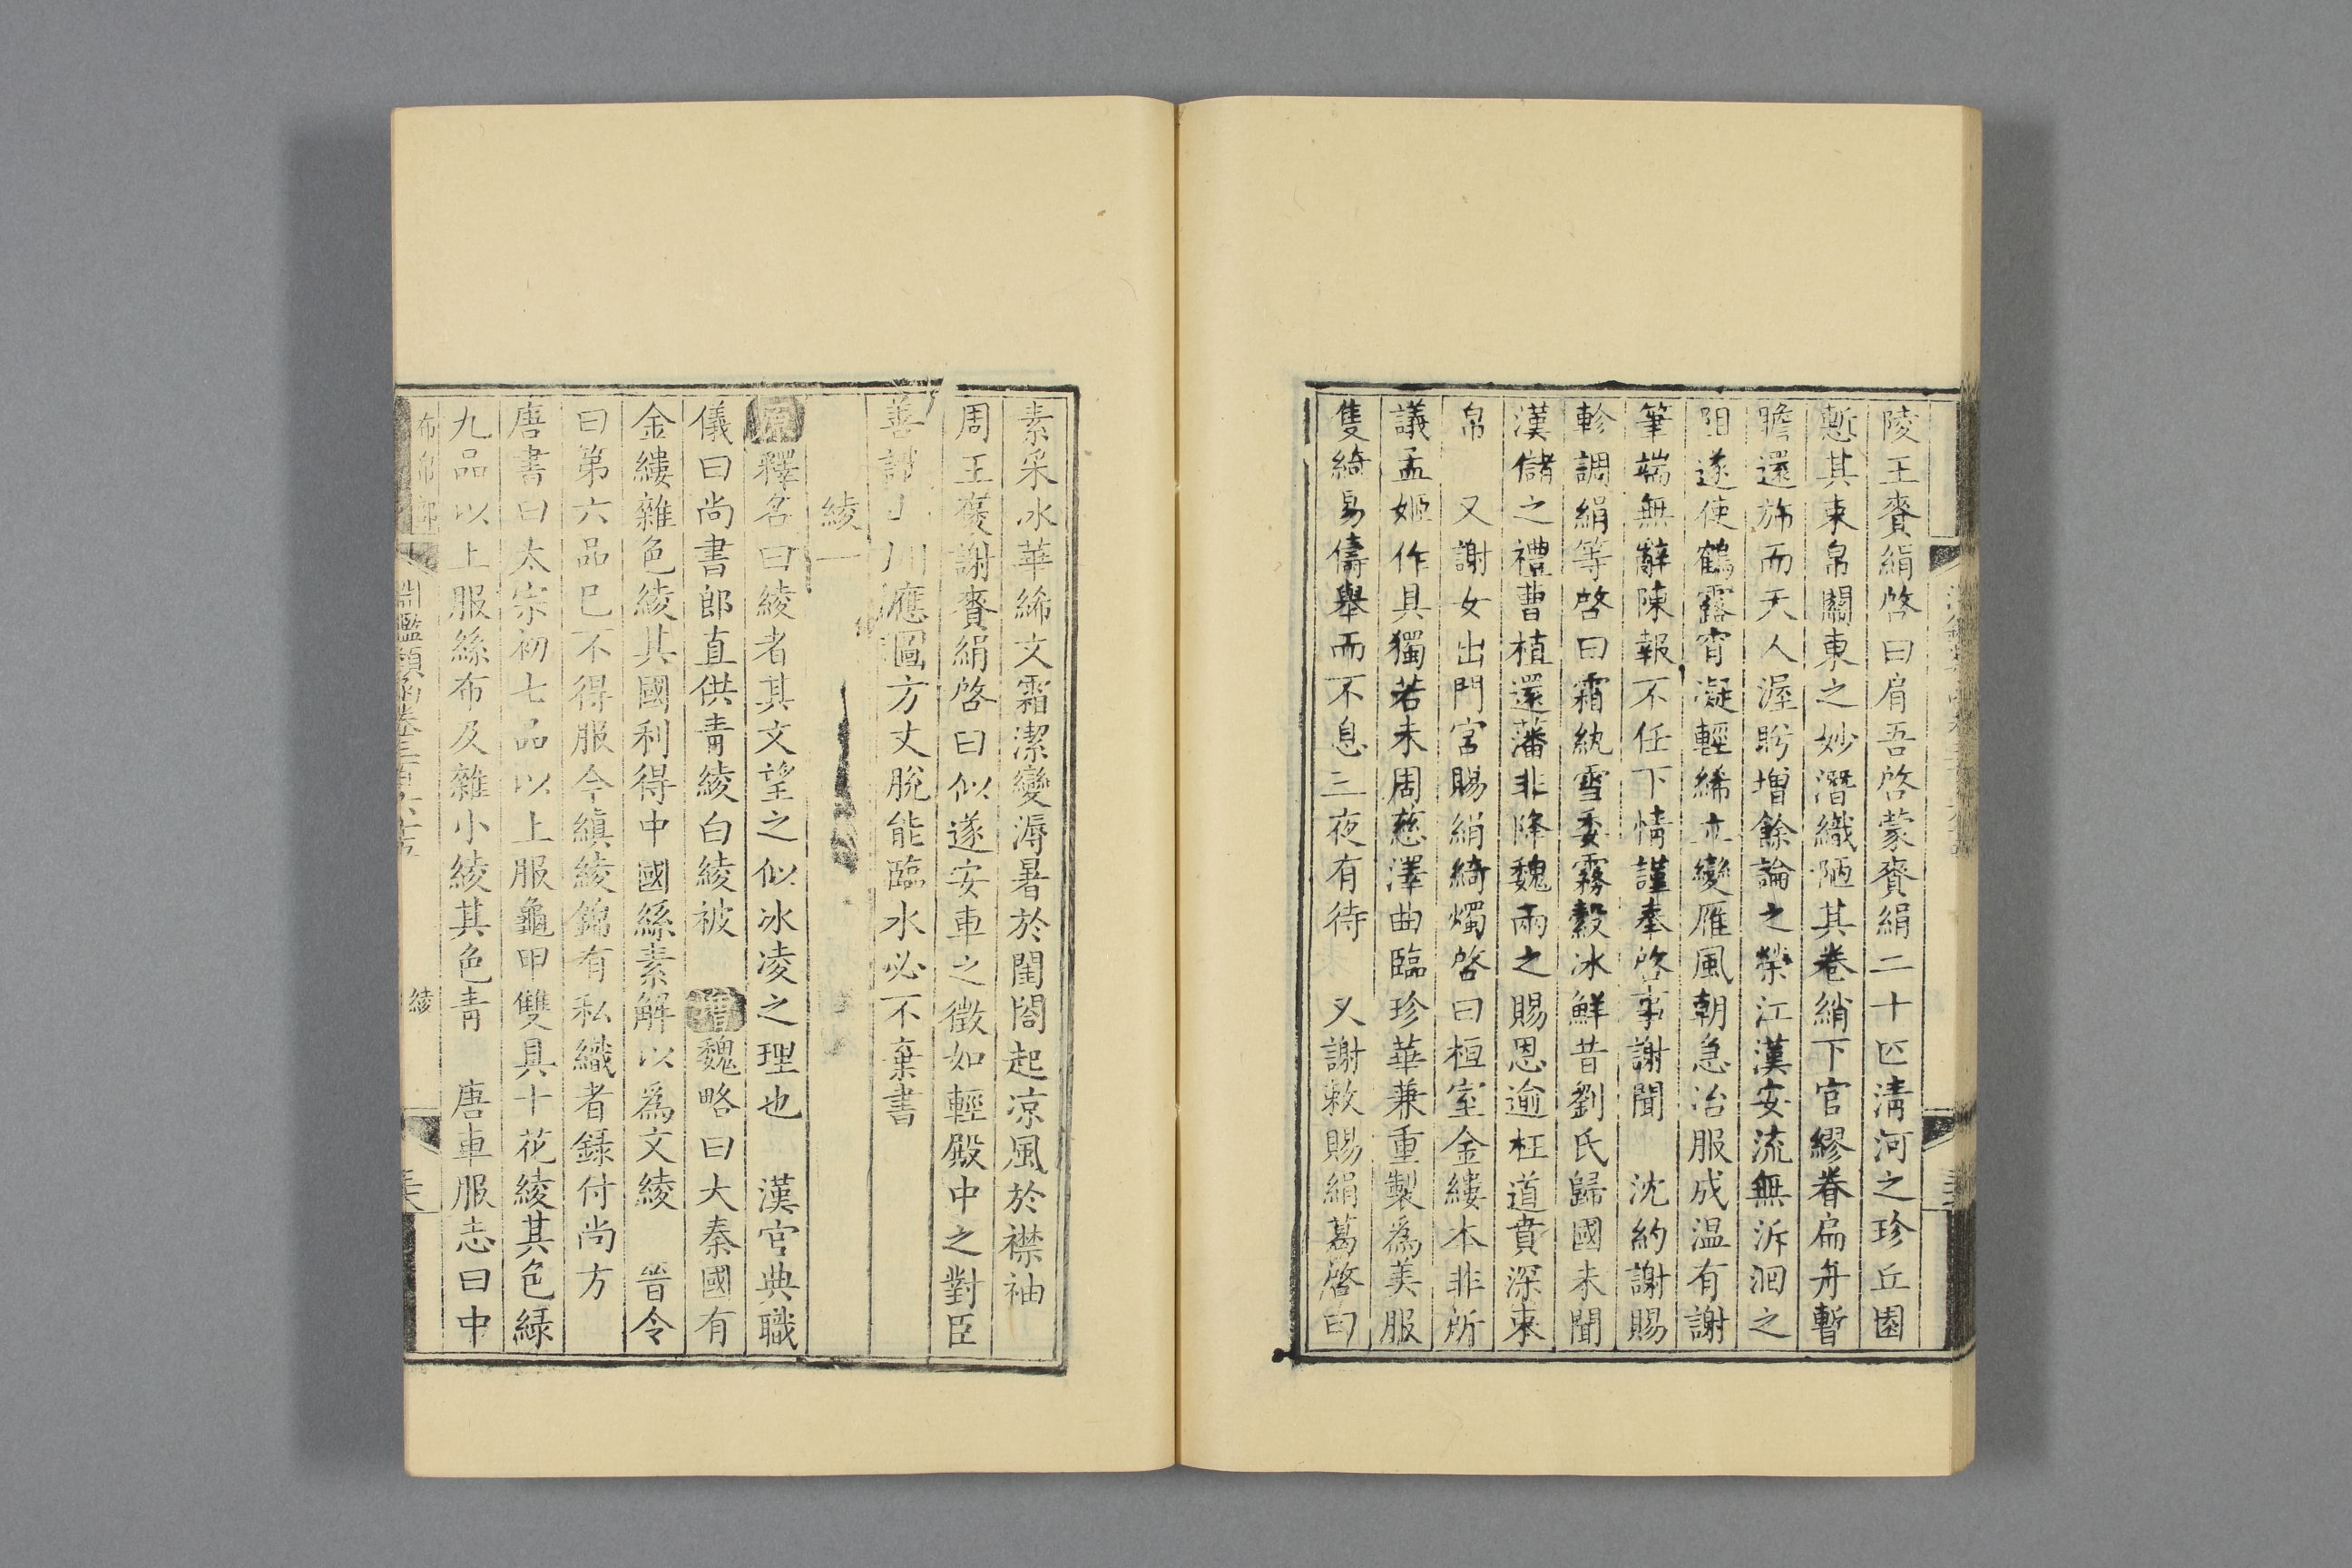 陵王賚絹啓曰肩吾啓蒙賚絹二十匹淸河之珍丘園
慙其束帛關東之妙潛織陋其卷綃下官繆眷扁舟暫
瞻還旆而天人渥眄增餘論之榮江漢安流無泝洄之
阻遂使鶴露宵凝輕綈立變雁風朝急冶服成温有謝
筆端無辭陳報不任下情謹奉啓事謝聞　沈約謝賜
軫調絹等啓曰霜紈雪委霧縠冰鮮昔劉氏歸國未聞
漢儲之禮曹植還藩非降魏兩之賜恩逾枉道賁深束
帛　又謝女出門宮賜絹綺燭啓曰桓室金縷本非所
議孟姬作具獨若未周慈澤曲臨珍華兼重製爲美服
隻綺易儔舉而不息三夜有待　又謝敕賜絹葛啓曰
素采冰華綈文霜潔變溽暑於閨閤起凉風於襟袖
周王褒謝賚絹啓曰似遂安車之徵如輕殿中之對臣
善　川應圖方丈脫能臨水必不棄書
綾一
原釋名曰綾者其文望之似冰凌之理也　漢官典職
儀曰尚書郎直供靑綾白綾被　增魏略曰大秦國有
金縷雜色綾其國利得中國絲素解以爲文綾　晉令
曰第六品已不得服今縝綾錦有私織者錄付尚方
唐書曰太宗初七品以上服龜甲雙具十花綾其色綠
九品以上服絲布及雜小綾其色靑　唐車服志曰中
布帛部　淵鑑類函卷三百六十五　綾